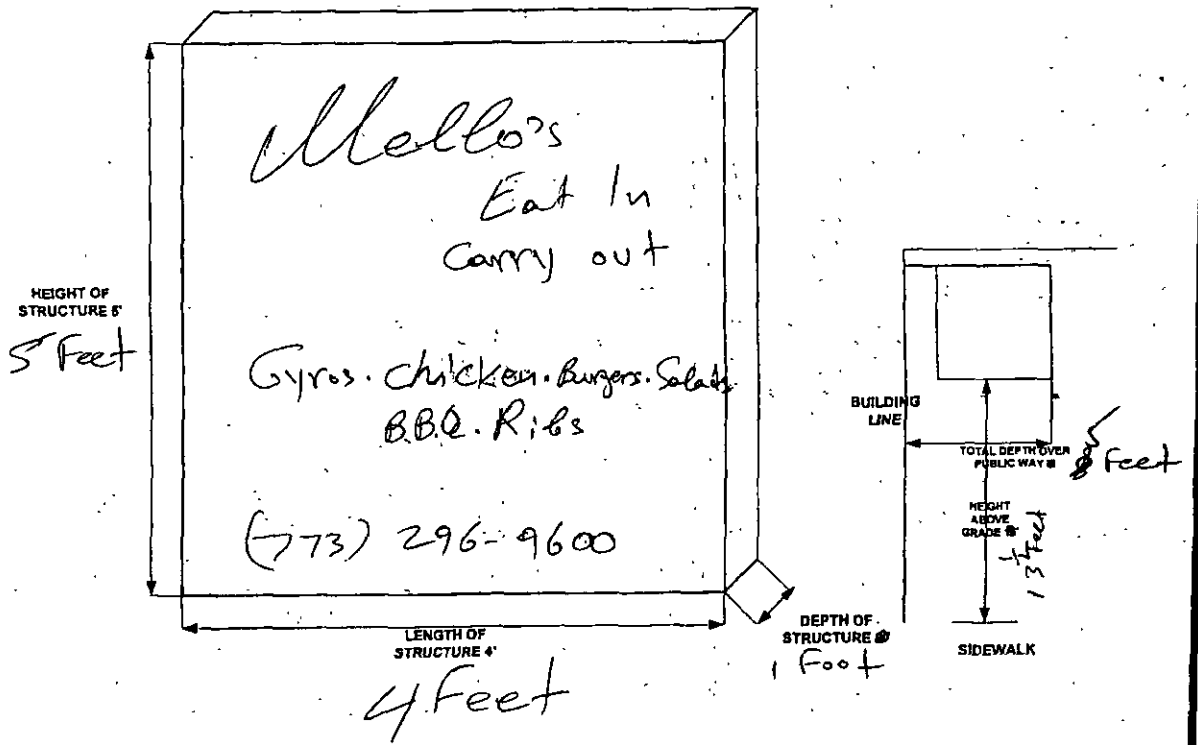 Mello's
Eat In
Carry out
Gyros. Chicken. Burgers. Salads
B.B.Q. Ribs
(773) 296-9600
HEIGHT OF
STRUCTURE 5'
5 Feet
LENGTH OF
STRUCTURE 4'
4 Feet
DEPTH OF
STRUCTURE
1 Foot
BUILDING
LINE
TOTAL DEPTH OVER
PUBLIC WAY
Feet
HEIGHT
ABOVE
GRADE
Feet
SIDEWALK